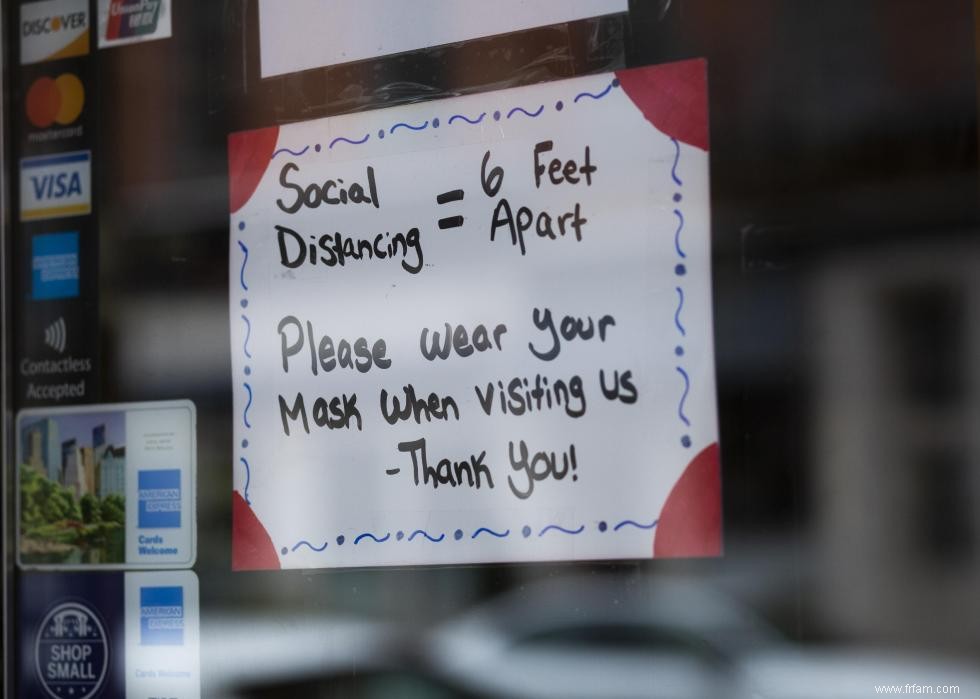 DISCOVER
UnionPay
银联
mastercard
VISA
AMERICAN
EXPRESS
Contactless
Accepted
AMERICAN
EXPRESS
Cards
Welcome
SHOP
SMALL
AMERICAN
EXPRESS
Cards Welcome
Social
Distancing
= 6 Feet
Apart
Please wear your
Mask when visiting us
-Thank you!
www.frfam.com